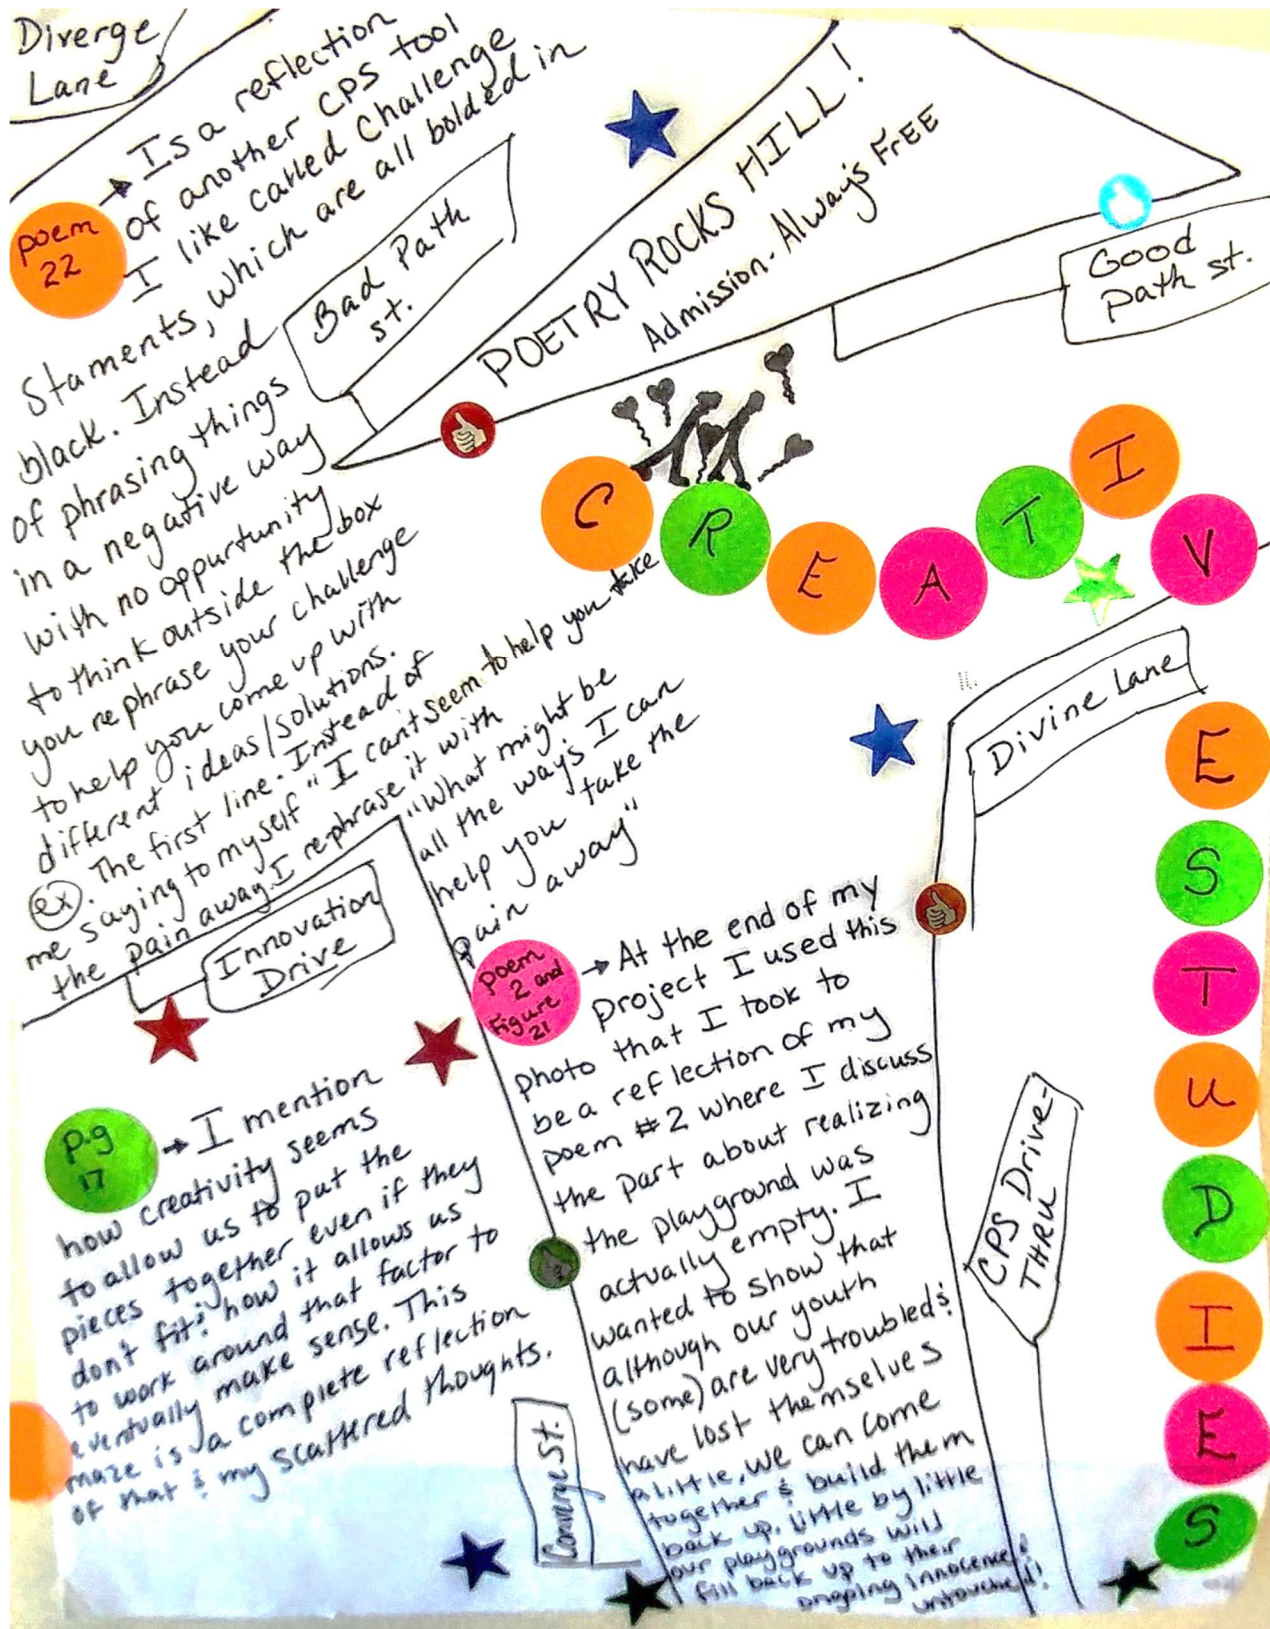 Diverge
Lane
poem
22
Is a reflection
of another CPS tool
I like called Challenge
Staments, which are all bolded in
black. Instead
of phrasing things
in a negative way
with no oppurtunity
to think outside the box
you rephrase your challenge
to help you come up with
different ideas/solutions.
ex. The first line. Instead of
me saying to myself "I cant seem to help you take
the pain away I rephrase it with
"What might be
all the ways I can
help you take the
pain away"
Bad Path
st.
POETRY ROCKS HILL!
Admission - Always FrEE
Good
path st.
CREATIVE STUDIES
Divine Lane
Innovation
Drive
poem
2 and
Figure
21
At the end of my
project I used this
photo that I took to
be a reflection of my
poem #2 where I discuss
the part about realizing
the playground was
actually empty. I
wanted to show that
although our youth
(some) are very troubled &
have lost themselves
a little, we can come
together & build them
back up. little by little
our playgrounds will
fill back up to their
innocence &
untouched!
p.g
17
I mention
how creativity seems
to allow us to put the
pieces together even if they
don't fit & how it allows us
to work around that factor to
eventually make sense. This
maze is a complete reflection
of that & my scattered thoughts.
Converge St.
CPS Drive-
THRU